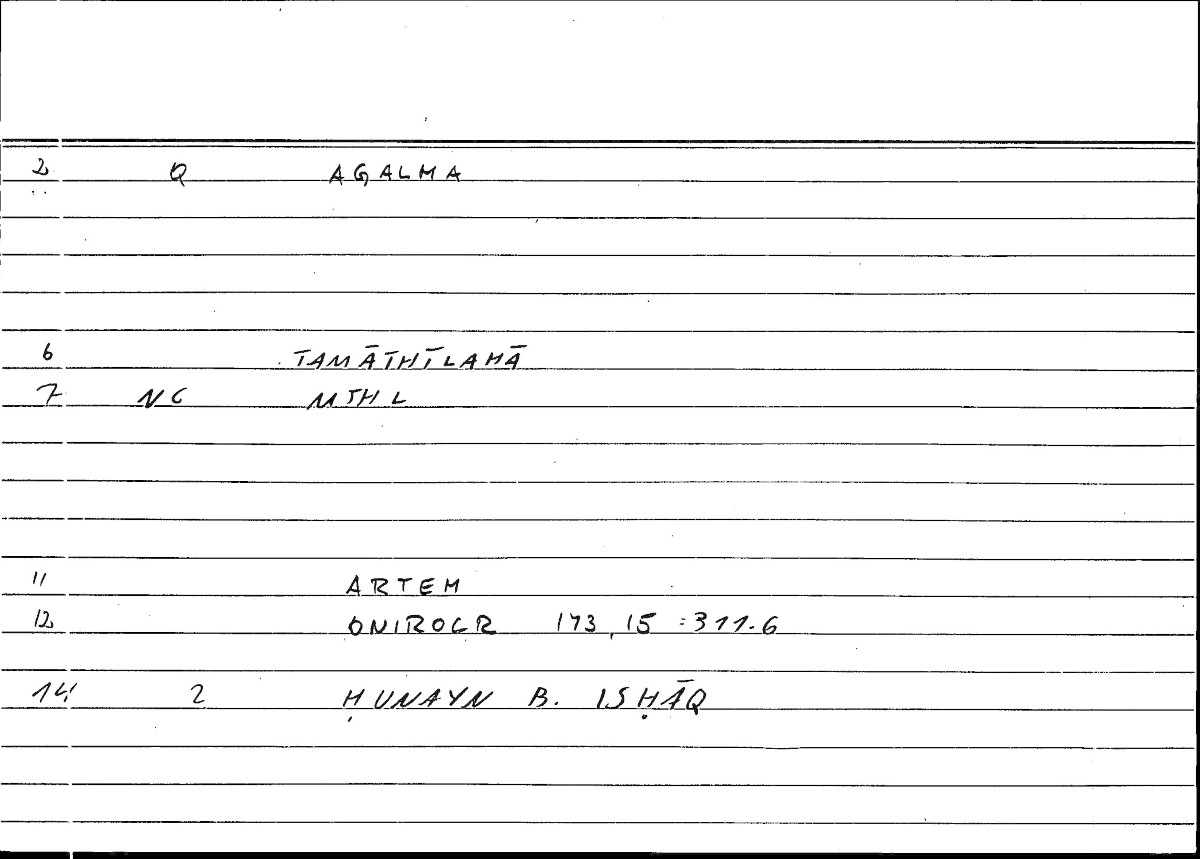 2 Q AGALMA
6 TAMĀTHĪLAHĀ
7 NC MTHL
11 ARTEM
12 ONIROCR 173,15 :311.6
14 2 ḤUNAYN B. ISḤĀQ